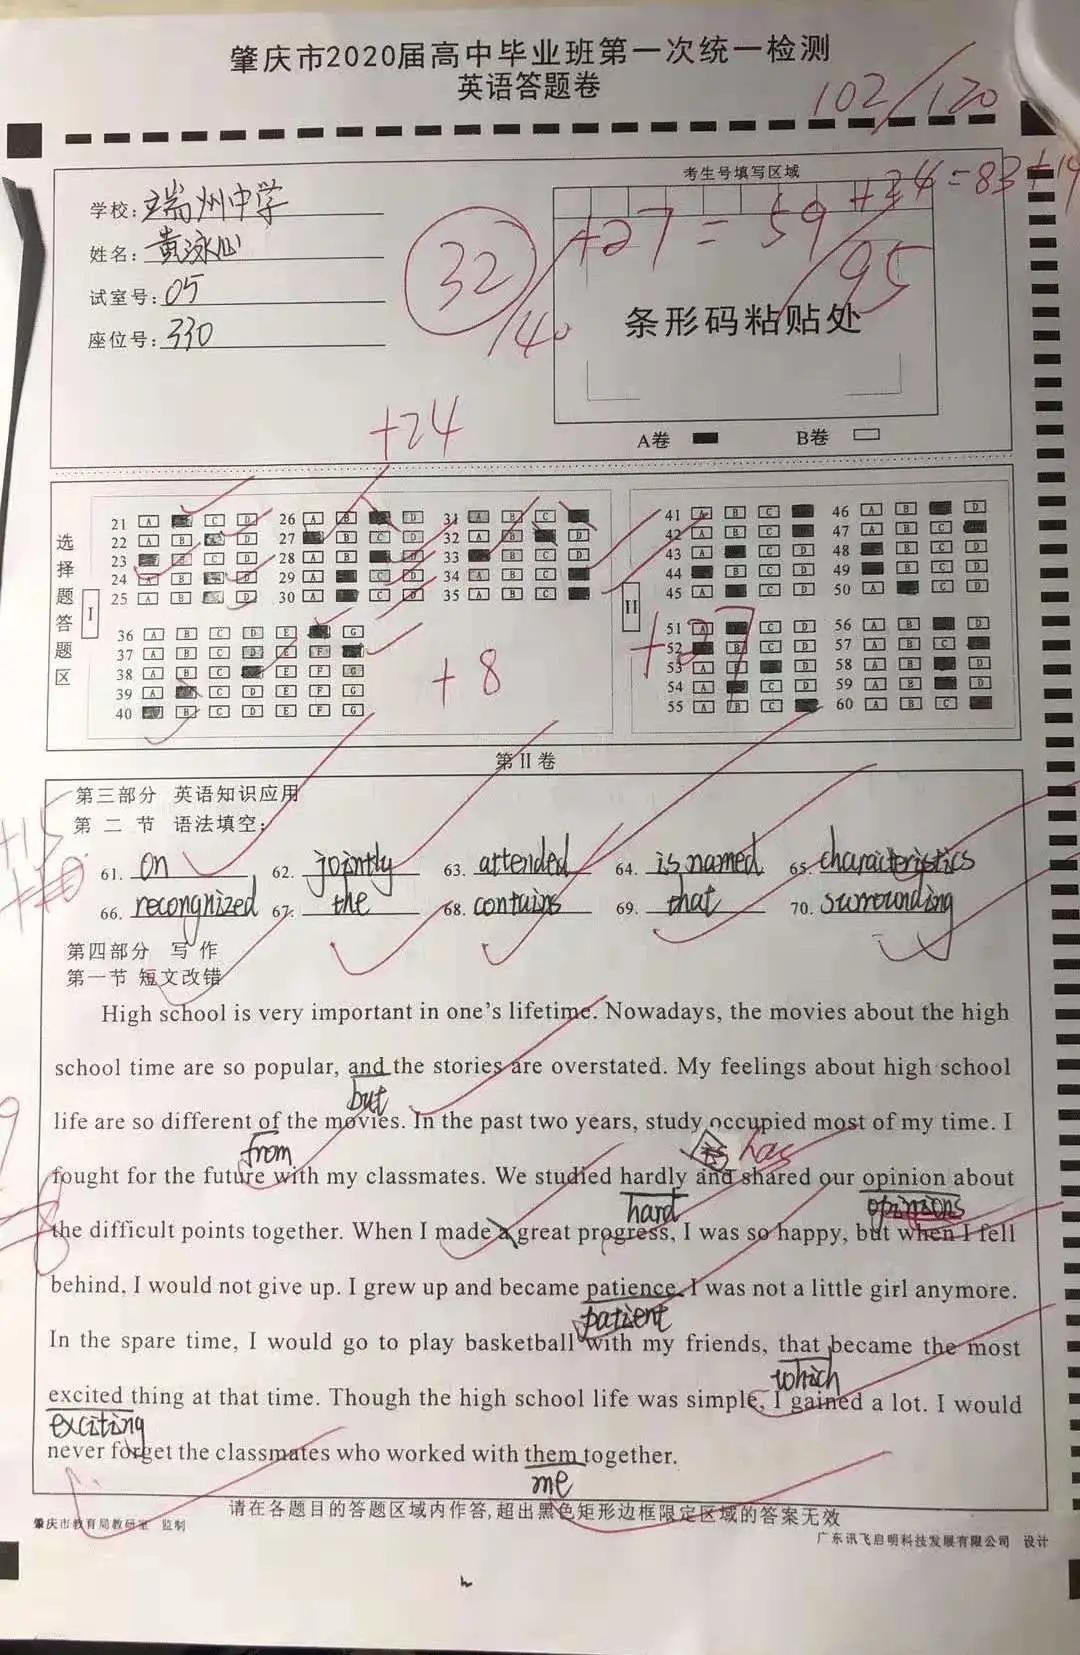 肇庆市2020届高中毕业班第一次统一检测
英语答题卷
102/120
考生号填写区域
+24=83+19
学校:端州中学
姓名:黄泳心
试室号:05
座位号:330
32/40
+27=59
/95
条形码粘贴处
A卷 B卷
+24
选择题答题区
I
21 A C D 26 A B D 31 A B C
22 A B C D 27 B C D 32 A B D
23 B C D 28 A B D 33 B C D
24 A B C D 29 A C D 34 A B C
25 A B C D 30 A C D 35 A B C
36 A B C D E G
37 A B C D E F
38 A B C E F G
39 A C D E F G
40 B C D E F G
+8
II
41 A B C 46 A B D
42 A B C 47 A B C
43 A C D 48 B C D
44 B C D 49 B C D
45 A C D 50 A C D
51 A C D 56 A B D
52 B C D 57 A B C
53 A B D 58 A B D
54 A C D 59 A B D
55 A B C 60 A B C
+27
第II卷
第三部分 英语知识应用
第二节 语法填空:
+15
61. on 62. jointly 63. attended 64. is named 65. characteristics
66. recongnized 67. the 68. contains 69. that 70. surrounding
第四部分 写作
第一节 短文改错
High school is very important in one's lifetime. Nowadays, the movies about the high
school time are so popular, and the stories are overstated. My feelings about high school
but
life are so different of the movies. In the past two years, study occupied most of my time. I
from has
fought for the future with my classmates. We studied hardly and shared our opinion about
hard opinions
the difficult points together. When I made a great progress, I was so happy, but when I fell
behind, I would not give up. I grew up and became patience. I was not a little girl anymore.
patient
In the spare time, I would go to play basketball with my friends, that became the most
which
excited thing at that time. Though the high school life was simple, I gained a lot. I would
exciting
never forget the classmates who worked with them together.
me
请在各题目的答题区域内作答,超出黑色矩形边框限定区域的答案无效
肇庆市教育局教研室 监制
广东讯飞启明科技发展有限公司 设计